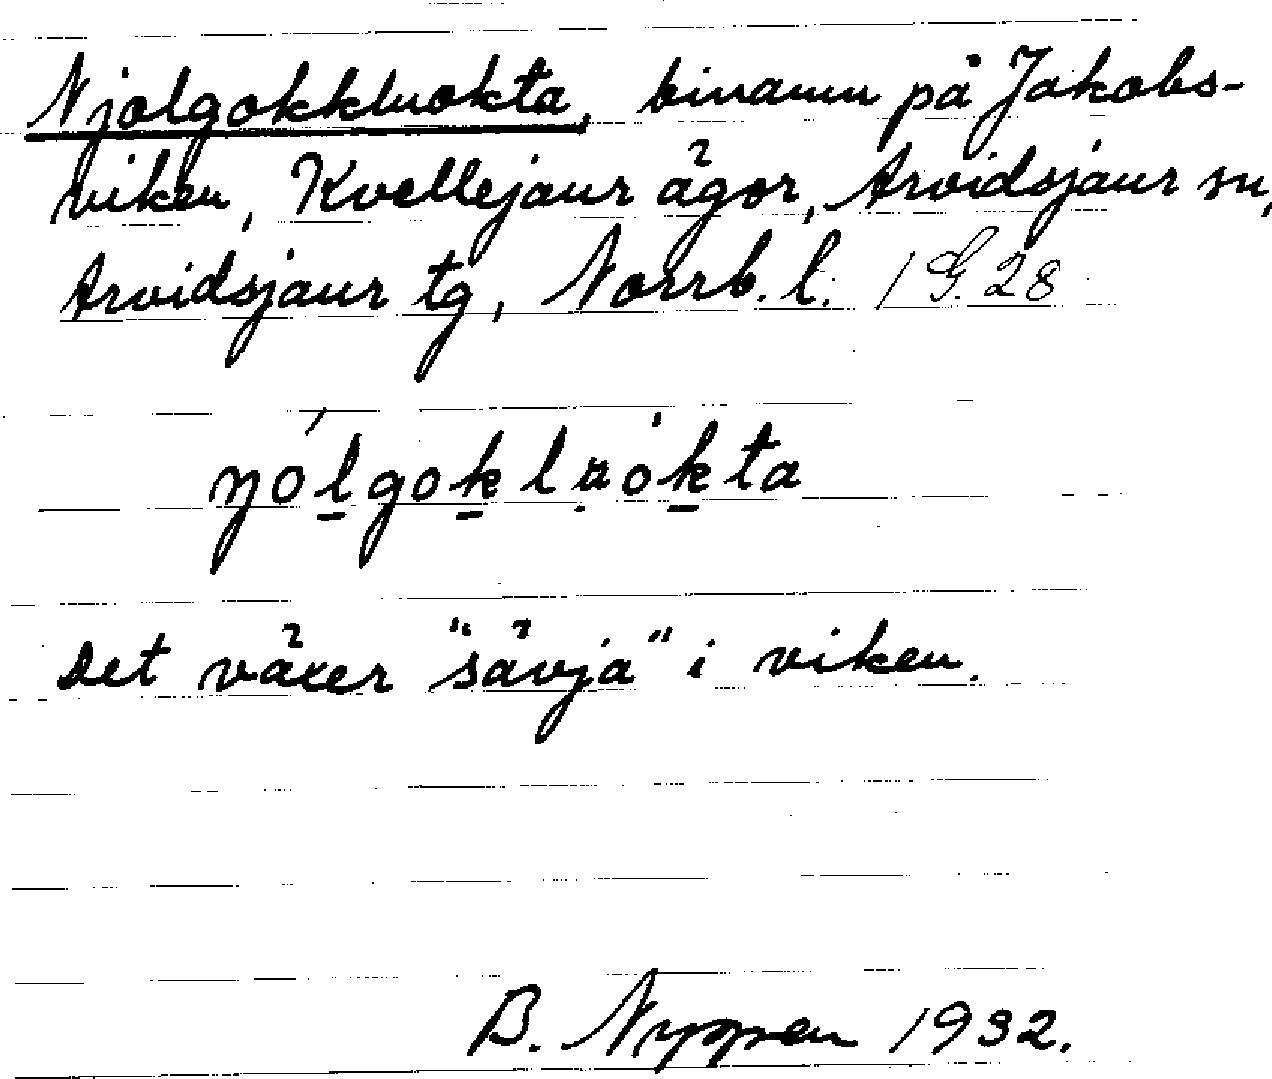 Njolgokkluokta, binamn på Jakobs-
viken, Kvellejaur ägor, Arvidsjaur sn,
Arvidsjaur tg, Norrb. l. 1 G. 28
ŋólgoklu̯ókta
Det växer "sävja" i viken.
B. Nyppen 1932.